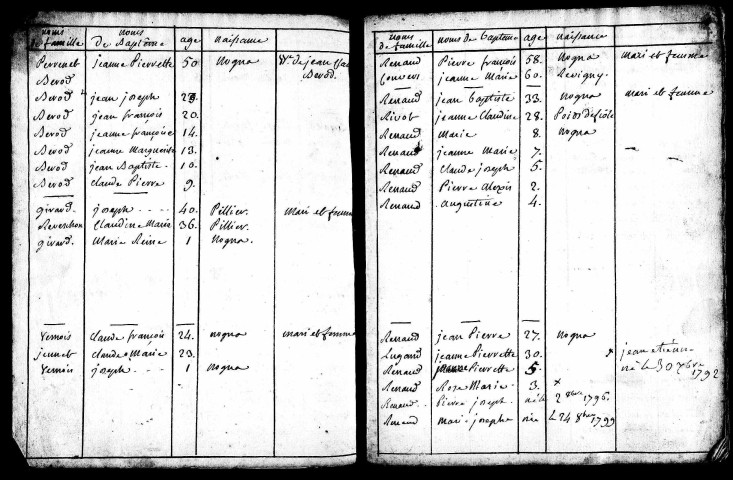 noms de famille noms de Baptême age naissance
Perrenet jeanne Pierrette 50 nogna Ve de jean
Berod Berod.
Berod jean joseph
Berod jean françois 20.
Berod jeanne françoise 14.
Berod jeanne Marguerite 13.
Berod jean Baptiste 10.
Berod claude Pierre 9.
girard joseph 40. Pillier. mari et femme
Reverchon Claudine Marie 36. Pillier.
girard. Marie Reine 1 nogna.
Vernois claude françois 24. nogna mari et femme
jeunet claude Marie 23.
Vernois joseph 1 nogna
noms de famille noms de Baptême age naissance
Renaud Pierre françois 58. nogna mari et femme
jeanne Marie 60. Revigny.
Renaud jean Baptiste 33. nogna mari et femme
Rivot jeanne claudine 28. Poids de fiole
Renaud Marie 8. nogna
Renaud jeanne Marie 7.
Renaud claude joseph 5.
Renaud Pierre alexis 2.
Renaud augustine 4.
Renaud jean Pierre 27. nogna
Lugand jeanne Pierrette 30. x jean etienne
Renaud Pierrette 5. né le 30 xbre 1792
Renaud Rose Marie 3. x
Renaud Pierre joseph né le 2 8bre 1796.
Renaud mari josephe née Le 24 8bre 1799